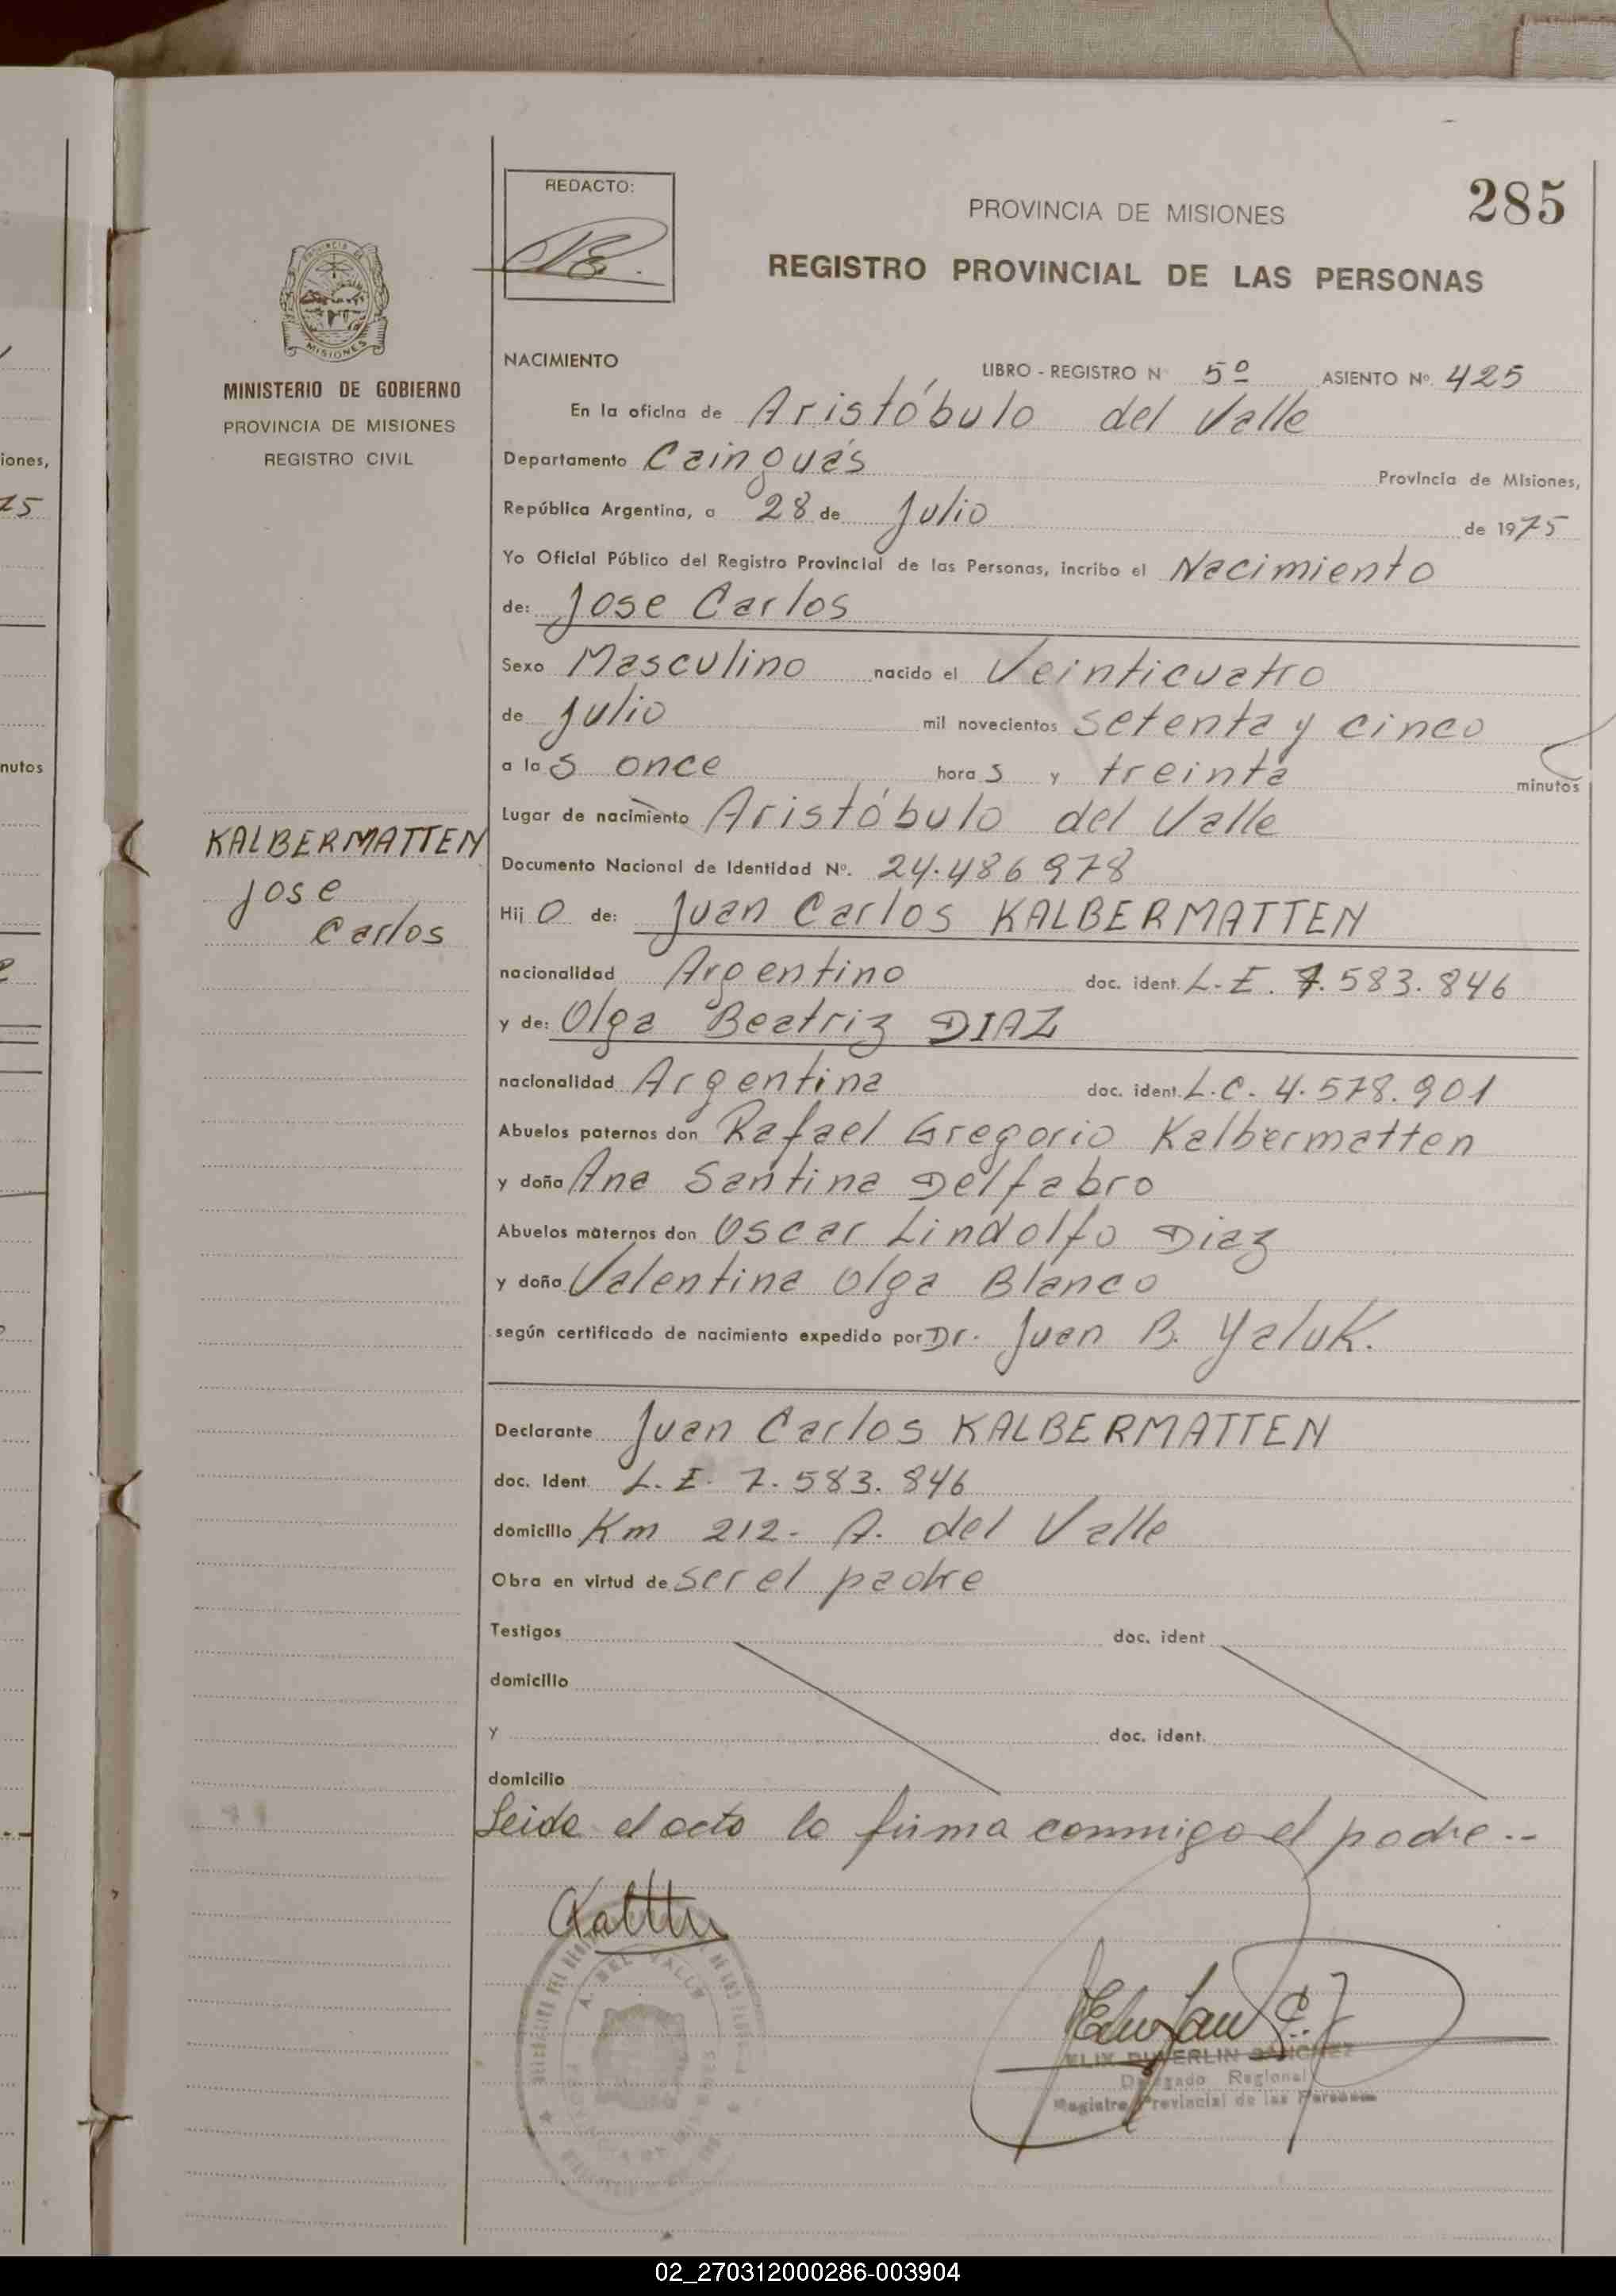 REDACTO:
PROVINCIA DE MISIONES
285
REGISTRO PROVINCIAL DE LAS PERSONAS
PROVINCIA DE
MISIONES
MINISTERIO DE GOBIERNO
PROVINCIA DE MISIONES
REGISTRO CIVIL
iones,
75
nutos
KALBERMATTEN
Jose
Carlos
NACIMIENTO
LIBRO - REGISTRO N 5º ASIENTO Nº. 425
En la oficina de Aristóbulo del Valle
Departamento Cainguás Provincia de Misiones,
República Argentina, a 28 de Julio de 1975
Yo Oficial Público del Registro Provincial de las Personas, incribo el Nacimiento
de: Jose Carlos
Sexo Masculino nacido el Veinticuatro
de Julio mil novecientos setenta y cinco
a las once horas y treinta minutos
Lugar de nacimiento Aristóbulo del Valle
Documento Nacional de Identidad Nº. 24.486978
Hijo de: Juan Carlos KALBERMATTEN
nacionalidad Argentino doc. ident. L.E. 7.583.846
y de: Olga Beatriz DIAZ
nacionalidad Argentina doc. ident. L.C. 4.578.901
Abuelos paternos don Rafael Gregorio Kalbermatten
y doña Ana Santina Delfabro
Abuelos maternos don Oscar Lindolfo Diaz
y doña Valentina Olga Blanco
según certificado de nacimiento expedido por Dr. Juan B. Yaluk.
Declarante Juan Carlos KALBERMATTEN
doc. Ident. L.E. 7.583.846
domicilio Km 212- A. del Valle
Obra en virtud de ser el padre
Testigos doc. ident
domicilio
y doc. ident.
domicilio
Leida el acto lo firma conmigo el padre --
A. DEL VALLE
ELIX DUVERLIN SANCHEZ
Delegado Regional
Registro Provincial de las Personas
02_270312000286-003904